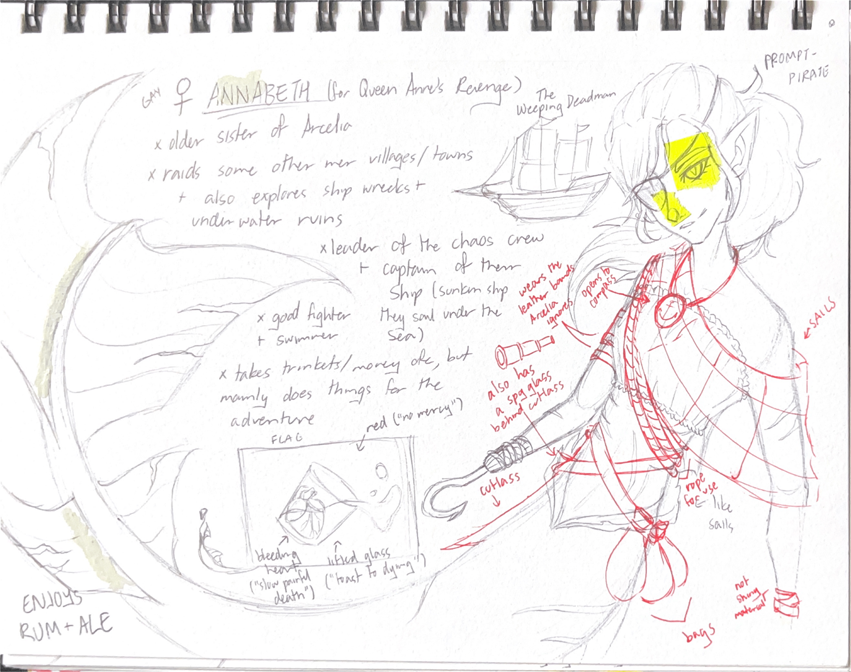 PROMPT-
PIRATE
GAY ♀ ANNABETH (for Queen Anne's Revenge)
The
Weeping Deadman
x older sister of Arcelia
x raids some other mer villages/towns
+ also explores ship wrecks +
underwater ruins
x leader of the chaos crew
+ captain of their
ship (sunken ship
they sail under the
sea)
x good fighter
+ swimmer
x takes trinkets/money ofc, but
mainly does things for the
adventure
wears the
leather bands
Arcelia
ignores
opens to
compass
SAILS
also has
a spy glass
behind cutlass
red ("no mercy")
FLAG
cutlass
rope
for use
like
sails
bleeding
heart
("slow painful
death")
lifted glass
("toast to dying")
not
shiny
material
bags
ENJOYS
RUM + ALE